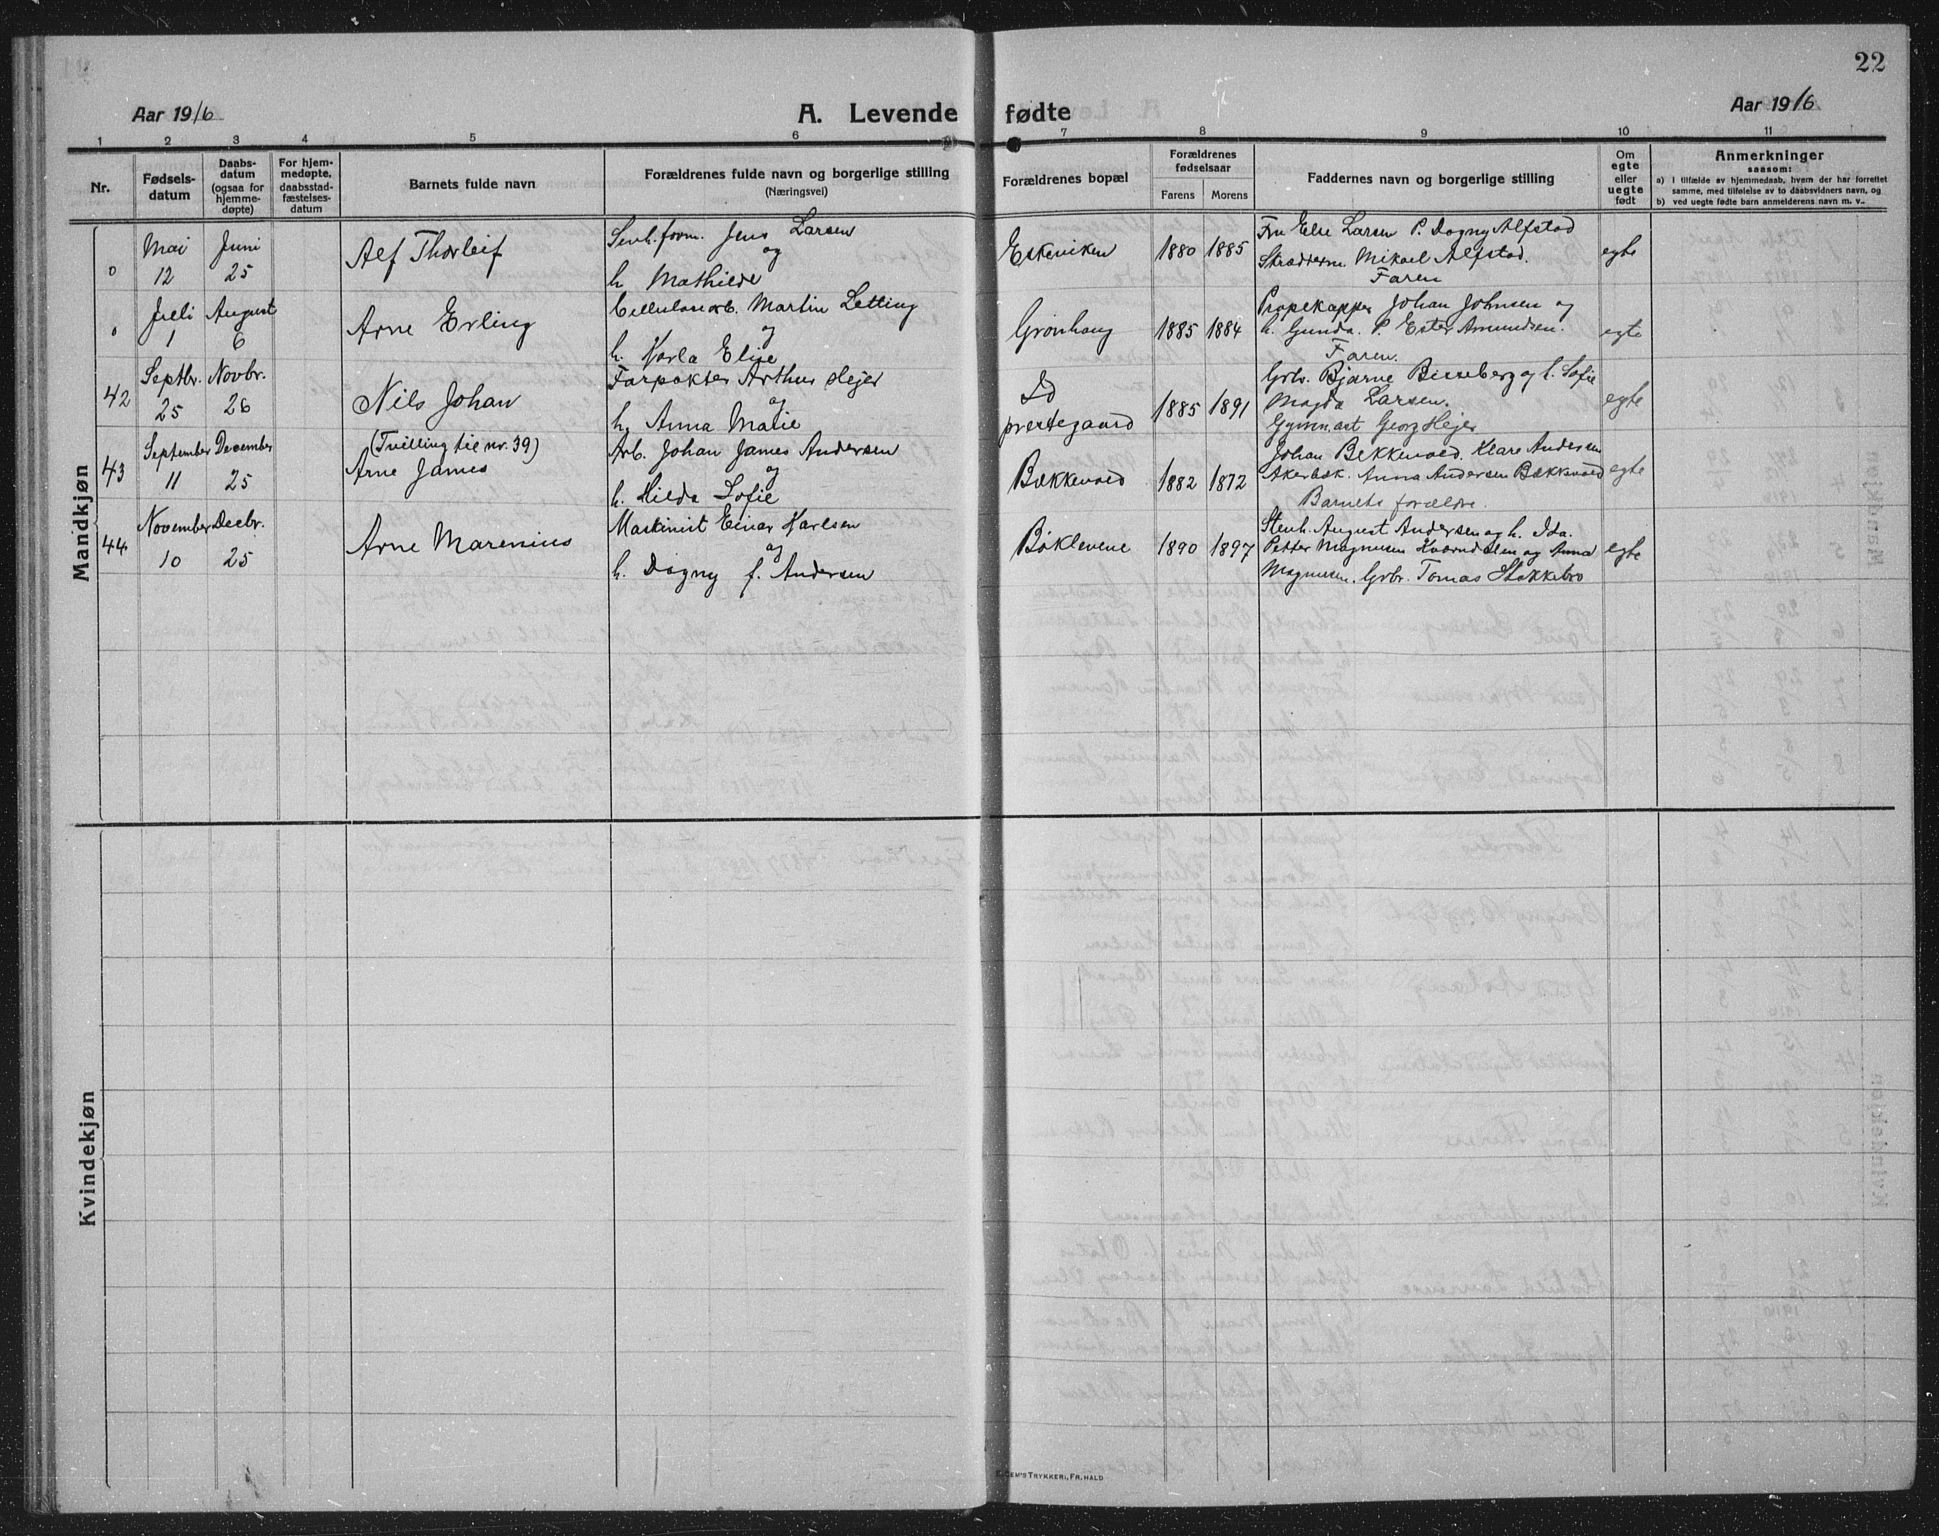 22
Aar 1916
A. Levende fødte
Aar 1916
1 2 3 4 5 6 7 8 9 10 11
Nr.
Fødsels-
datum
Daabs-
datum
(ogsaa for
hjemme-
døpte)
For hjem-
medøpte,
daabsstad-
fæstelses-
datum
Barnets fulde navn
Forældrenes fulde navn og borgerlige stilling
(Næringsvei)
Forældrenes bopæl
Forældrenes
fødselsaar
Farens Morens
Faddernes navn og borgerlige stilling
Om
egte
eller
uegte
født
Anmerkninger
saasom:
a) i tilfælde av hjemmedaab, hvem der har forrettet
samme, med tilføielse av to daabsvidners navn, og
b) ved uegte fødte barn anmelderens navn m. v..
Mandkjøn
0
Mai
12
Juni
25
Alf Thorleif
Jens Larsen
og
h. Mathilde
Eskeviken
1880 1885
Fru Else Larsen P. Dagny Alfstad
Mikael Alfstad.
Faren
egte
0
Juli
1
August
6
Arne Erling
Martin Letting
og
h. Karla Elise
Grønhaug
1885 1884
Johan Johnsen og
h. Gunda. P. Ester Amundsen.
Faren.
egte
42
Septbr.
25
Novbr.
26
Nils Johan
Forpakter Arthur Hejer
og
h. Anna Marie
Id
prestegaard
1885 1891
Grbr. Bjarne Bisseberg og h. Sofie
Magda Larsen.
Gymnast Georg Hejer
egte
43
September
11
December
25
(Tvilling til nr. 39)
Arne James
Arb. Johan James Andersen
og
h. Hilda Sofie
Bækkevold
1882 1872
Johan Bekkevold. Klare Andersen
Akerbæk. Anna Andersen Bækkevold
Barnets forældre.
egte
44
November
10
Decbr.
25
Arne Marenius
Maskinist Einar Karlsen
og
h. Dagny f. Andersen
Bøklevene
1890 1897
Stenh. August Andersen og h. Ida.
Petter Magnusen Kværndalen og Anna
Magnusen. Grbr. Tomas Stokkebro
egte
Kvindekjøn
E. SEM'S TRYKKERI, FR. HALD